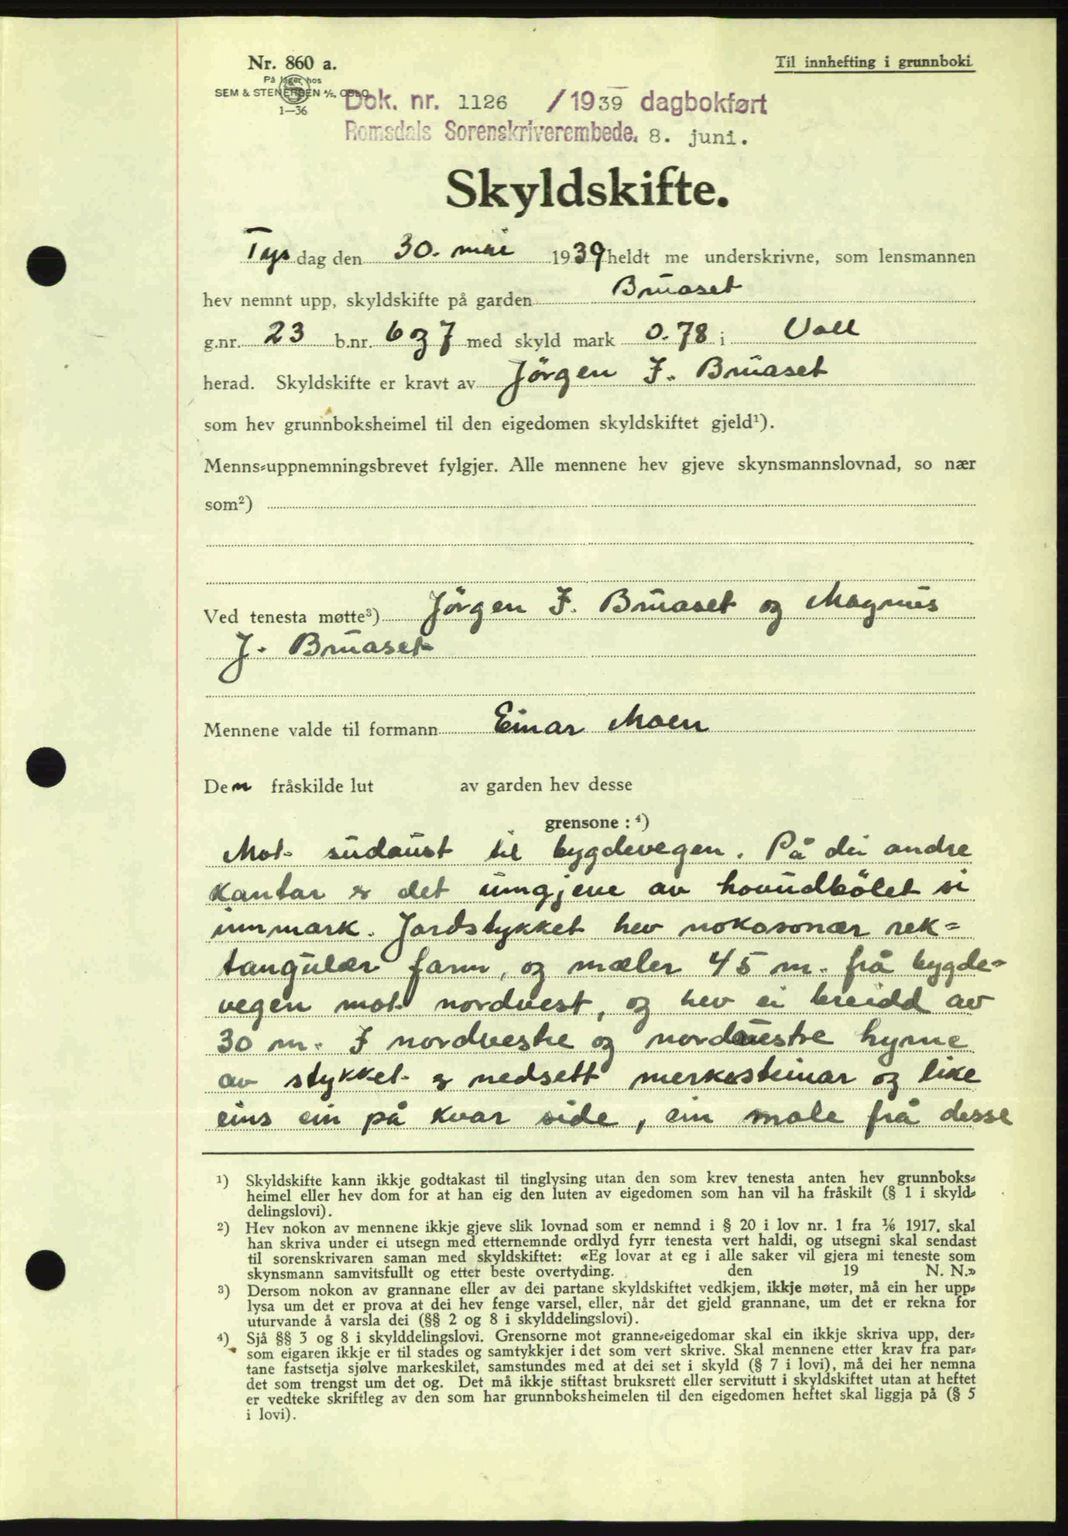 Nr. 860 a.
Til innhefting i grunnboki
På lager hos
SEM & STENERSEN A/S, OSLO
1—36
Dok. nr. 1126 /1939 dagbokført
Romsdals Sorenskriverembede, 8. juni.
Skyldskifte.
Tysdag den 30. mai 1939 heldt me underskrivne, som lensmannen
hev nemnt upp, skyldskifte på garden Bruaset
g.nr. 23 b.nr. 6 og 7 med skyld mark 0.78 i Voll
herad. Skyldskifte er kravt av Jörgen J. Bruaset
som hev grunnboksheimel til den eigedomen skyldskiftet gjeld¹).
Menns-uppnemningsbrevet fylgjer. Alle mennene hev gjeve skynsmannslovnad, so nær
som²)
Ved tenesta møtte³) Jörgen J. Bruaset og Magnus
J. Bruaset
Mennene valde til formann Einar Moen
Den fråskilde lut av garden hev desse
grensone : ⁴)
Mot sudaust til bygdevegen. På dei andre
kantar er det umgjeve av hovudbölet si
innmark. Jordstykket hev nokosonær rek=
tangulær farm, og mæler 45 m. frå bygde=
vegen mot nordvest, og hev ei breidd av
30 m. I nordvestre og nordaustre hyrne
av stykket er nedsett merkesteinar og like
eins ein på kvar side, ein male frå desse
¹) Skyldskifte kann ikkje godtakast til tinglysing utan den som krev tenesta anten hev grunnboks-
heimel eller hev dom for at han eig den luten av eigedomen som han vil ha fråskilt (§ 1 i skyld-
delingslovi).
²) Hev nokon av mennene ikkje gjeve slik lovnad som er nemnd i § 20 i lov nr. 1 fra 1/6 1917, skal
han skriva under ei utsegn med etternemnde ordlyd fyrr tenesta vert haldi, og utsegni skal sendast
til sorenskrivaren saman med skyldskiftet: «Eg lovar at eg i alle saker vil gjera mi teneste som
skynsmann samvitsfullt og etter beste overtyding. den 19 N. N.»
³) Dersom nokon av grannane eller av dei partane skyldskiftet vedkjem, ikkje møter, må ein her upp-
lysa um det er prova at dei hev fenge varsel, eller, når det gjeld grannane, um det er rekna for
uturvande å varsla dei (§§ 2 og 8 i skylddelingslovi).
⁴) Sjå §§ 3 og 8 i skylddelingslovi. Grensorne mot granne-eigedomar skal ein ikkje skriva upp, der-
som eigaren ikkje er til stades og samtykkjer i det som vert skrive. Skal mennene etter krav fra par-
tane fastsetja sjølve markeskilet, samstundes med at dei set i skyld (§ 7 i lovi), må dei her nemna
det som trengst um det og. Det må ikkje stiftast bruksrett eller servitutt i skyldskiftet utan at heftet
er vedteke skriftleg av den som har grunnboksheimelen til den eigedomen heftet skal liggja på (§ 5
i lovi).